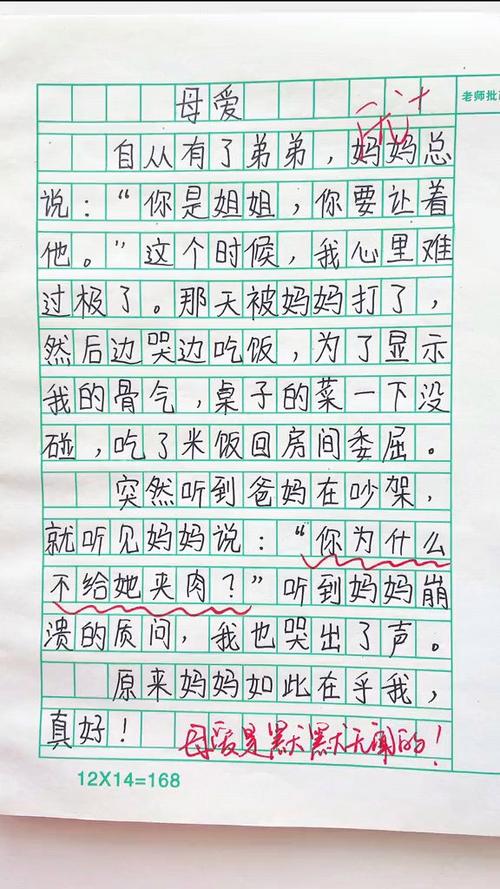 母爱
老师批
自从有了弟弟，妈妈总
说：“你是姐姐，你要让着
他。”这个时候，我心里难
过极了。那天被妈妈打了，
然后边哭边吃饭，为了显示
我的骨气，桌子的菜一下没
碰，吃了米饭回房间委屈。
突然听到爸妈在吵架，
就听见妈妈说：“你为什么
不给她夹肉？”听到妈妈崩
溃的质问，我也哭出了声。
原来妈妈如此在乎我，
真好！
母爱是默默无闻的！
12X14=168